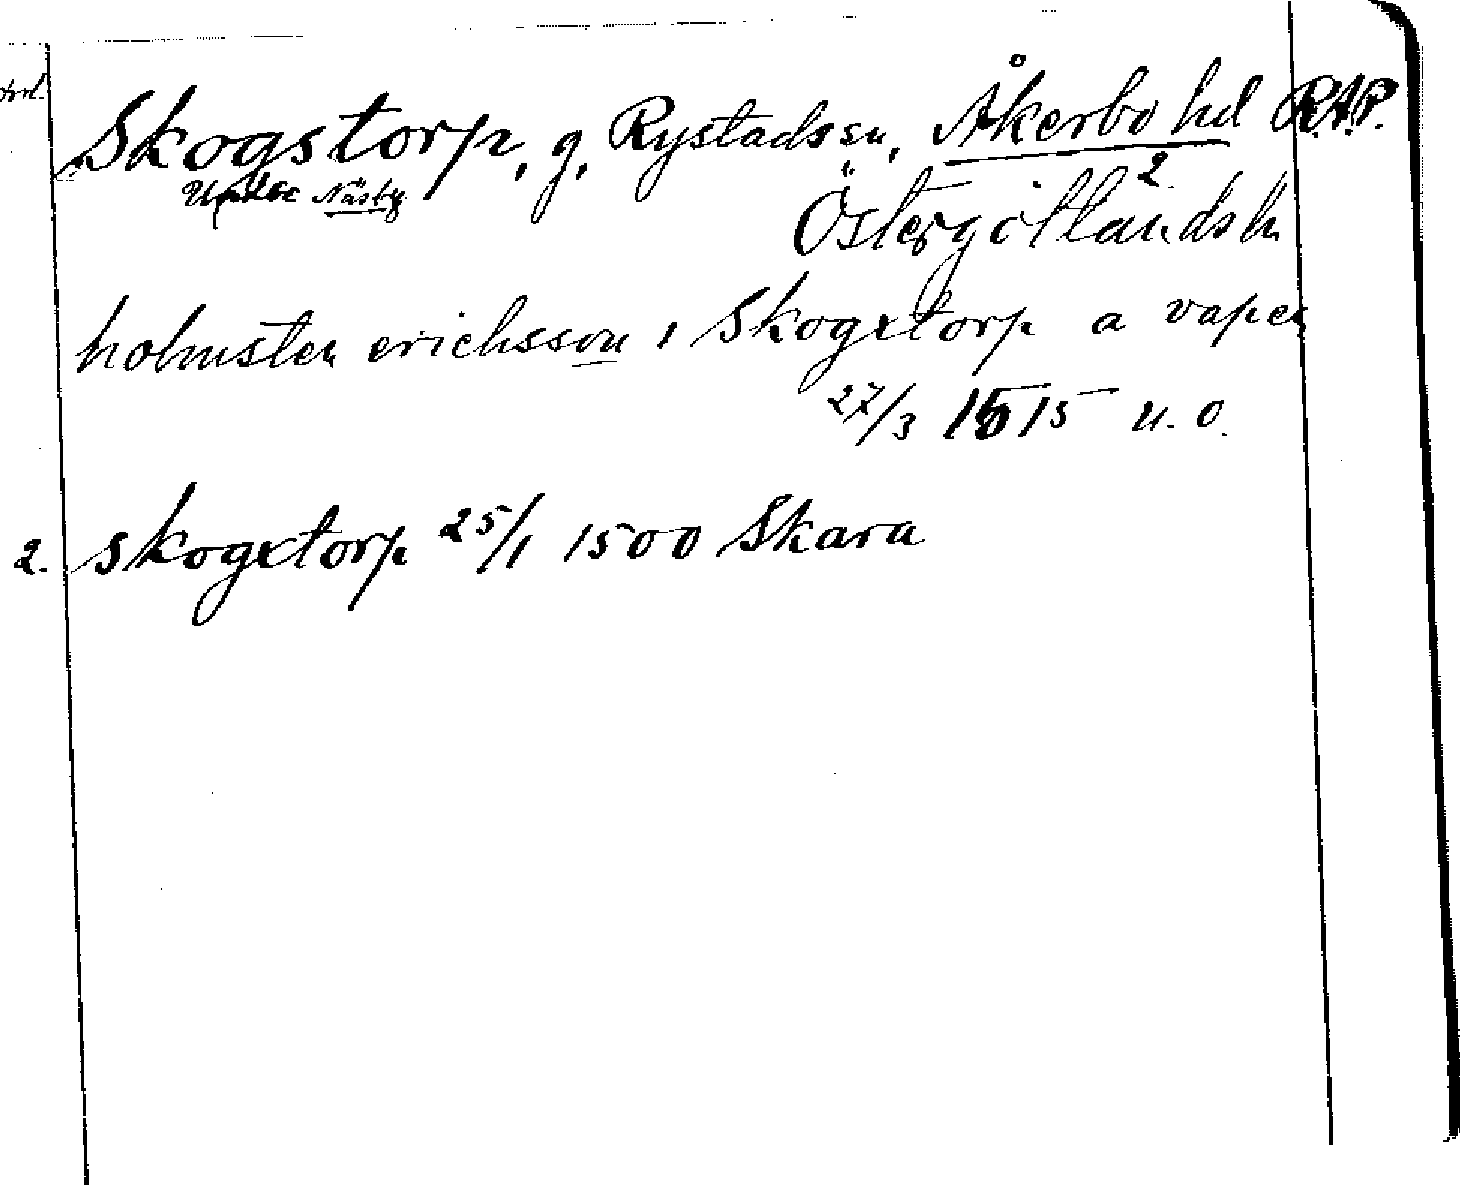 Skogstorp, g, Rystads sn, Åkerbo hd R.A.P.
Under Näsby 2
Östergötlands l.
holmsten erichsson i Skogxtorp a vapen
27/3 1515 u. o.
2. skogxtorp 25/1 1500 Skara